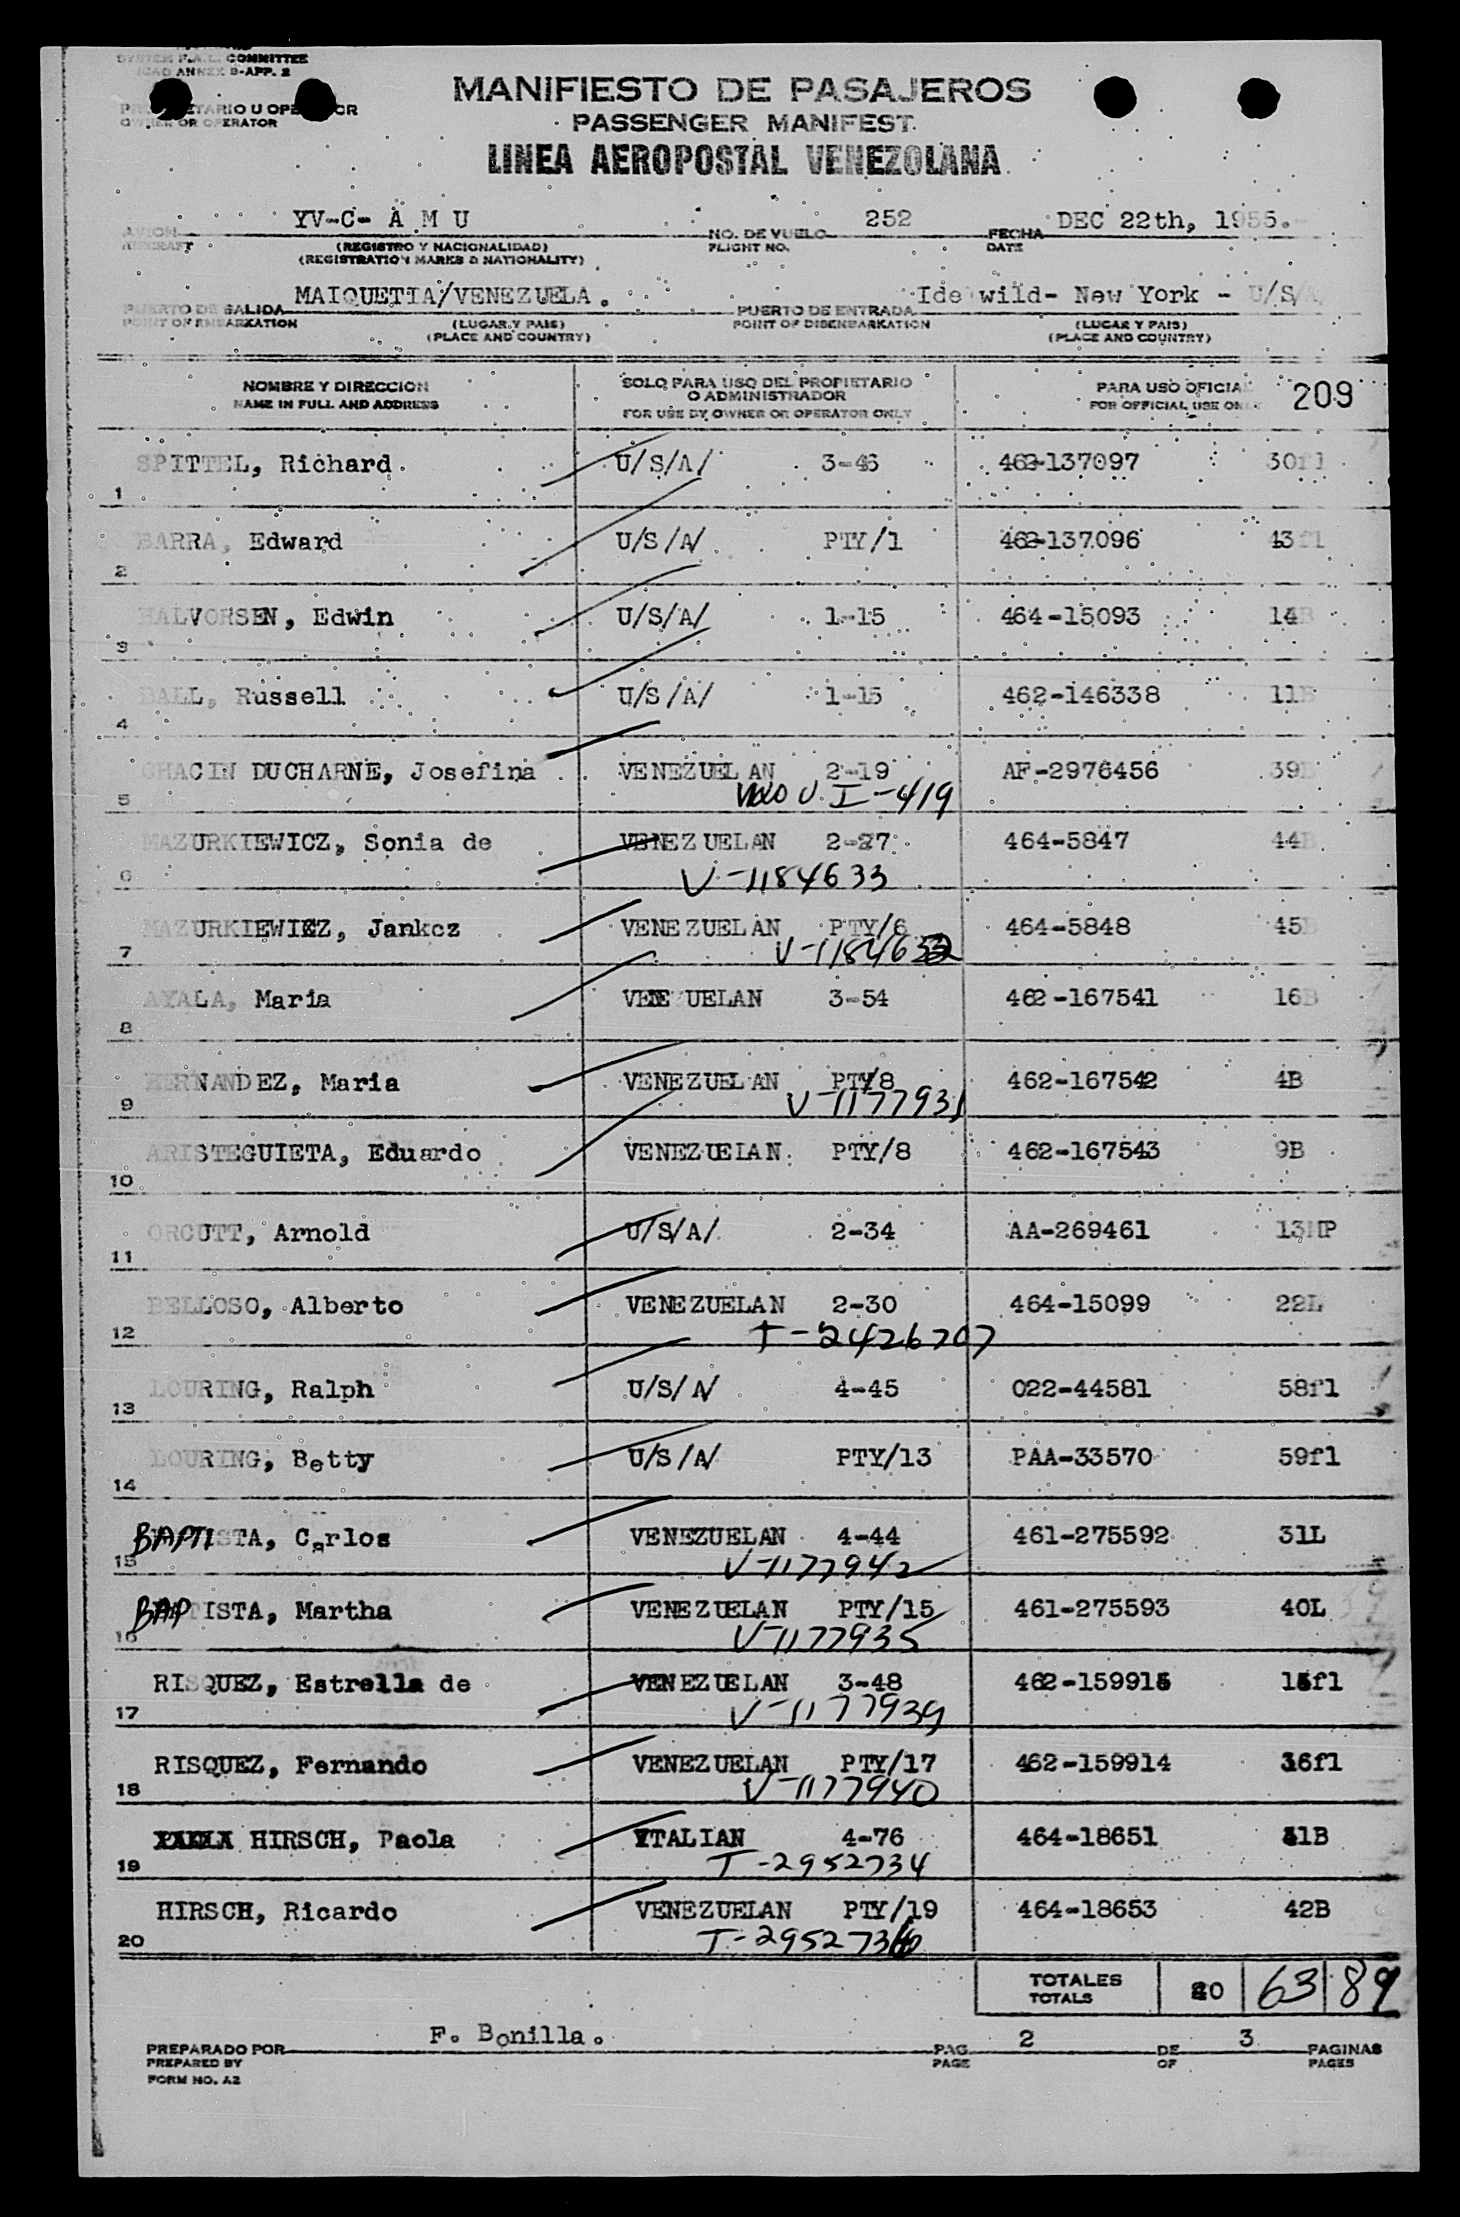 SYSTEM F.A.L. COMMITTEE
ICAO ANNEX 9-APP. 2
MANIFIESTO DE PASAJEROS
PROPIETARIO U OPERADOR
OWNER OR OPERATOR
PASSENGER MANIFEST
LINEA AEROPOSTAL VENEZOLANA
AVION AIRCRAFT YV-C- A M U NO. DE VUELO 252 FECHA DEC 22th, 1955.
(REGISTRO Y NACIONALIDAD) FLIGHT NO. DATE
(REGISTRATION MARKS & NATIONALITY)
PUERTO DE SALIDA MAIQUETIA/VENEZUELA. PUERTO DE ENTRADA Idewild- New York - U/S/A
POINT OF EMBARKATION (LUGAR Y PAIS) POINT OF DISEMBARKATION (LUGAR Y PAIS)
(PLACE AND COUNTRY) (PLACE AND COUNTRY)
NOMBRE Y DIRECCION SOLO PARA USO DEL PROPIETARIO O ADMINISTRADOR PARA USO OFICIAL 209
NAME IN FULL AND ADDRESS FOR USE BY OWNER OR OPERATOR ONLY FOR OFFICIAL USE ONLY
1 SPITTEL, Richard U/S/A/ 3-46 462-137097 30fl
2 BARRA, Edward U/S/A/ PTY/1 462-137096 43fl
3 HALVORSEN, Edwin U/S/A/ 1-15 464-15093 14B
4 BALL, Russell U/S/A/ 1-15 462-146338 11B
5 CHACIN DUCHARNE, Josefina VENEZUELAN 2-19 AF-2976456 39B
I-419
6 MAZURKIEWICZ, Sonia de VENEZUELAN 2-27 464-5847 44B
V-1184633
7 MAZURKIEWIEZ, Jankcz VENEZUELAN PTY/6 464-5848 45B
V-1184632
8 AYALA, Maria VENEZUELAN 3-54 462-167541 16B
9 HERNANDEZ, Maria VENEZUELAN PTY/8 462-167542 4B
V-1177931
10 ARISTEGUIETA, Eduardo VENEZUELAN PTY/8 462-167543 9B
11 ORCUTT, Arnold U/S/A/ 2-34 AA-269461 13NP
12 BELLOSO, Alberto VENEZUELAN 2-30 464-15099 22L
T-2426707
13 LOURING, Ralph U/S/A/ 4-45 022-44581 58fl
14 LOURING, Betty U/S/A/ PTY/13 PAA-33570 59fl
15 BAPTISTA, Carlos VENEZUELAN 4-44 461-275592 31L
V-1177942
16 BAPTISTA, Martha VENEZUELAN PTY/15 461-275593 40L
V-1177935
17 RISQUEZ, Estrella de VENEZUELAN 3-48 462-159915 15fl
V-1177939
18 RISQUEZ, Fernando VENEZUELAN PTY/17 462-159914 36fl
V-1177940
19 HIRSCH, Paola ITALIAN 4-76 464-18651 41B
T-2952734
20 HIRSCH, Ricardo VENEZUELAN PTY/19 464-18653 42B
T-2952736
TOTALES 20 63 89
TOTALS
PREPARADO POR F. Bonilla. PAG. 2 DE 3 PAGINAS
PREPARED BY PAGE OF PAGES
FORM NO. A2